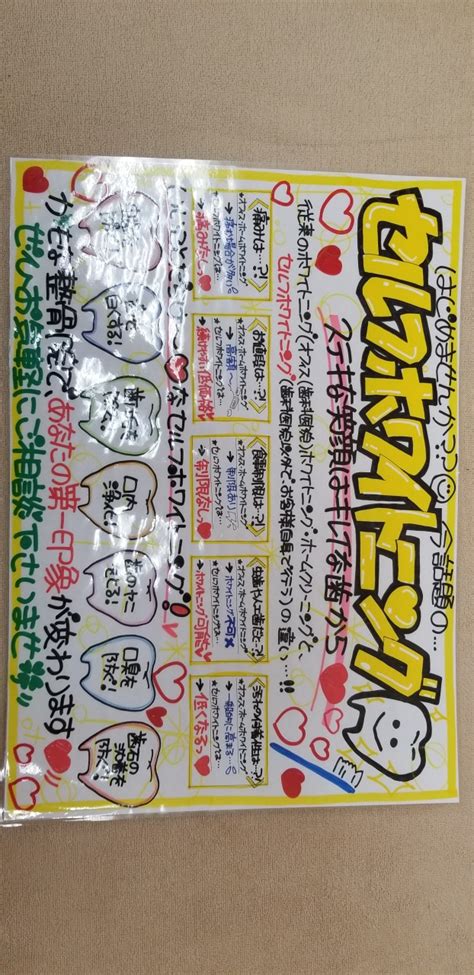 はじめませんか?? 今話題の…
セルフホワイトニング
ステキな笑顔はキレイな歯から
従来のホワイトニング(オフィス(歯科医院)ホワイトニング・ホームクリーニング)と、
セルフホワイトニング(歯科医院以外でお客様自身で行う)の違い…!!
痛みは…?!
★オフィス・ホームホワイトニング
→痛む場合が多い
★セルフホワイトニングでは…
→痛みなしっ
お値段は…?!
★オフィス・ホームホワイトニング
→高額
★セルフホワイトニングでは…
→続けやすい低価格
食事制限は…?!
★オフィス・ホームホワイトニング
→制限あり
★セルフホワイトニングでは…
→制限なしっ
虫歯や人工歯だと…?!
★オフィス・ホームホワイトニング
→ホワイトニング不可
★セルフホワイトニングでは…
→ホワイトニング可能
汚れの付着性は…?!
★オフィス・ホームホワイトニング
→一般的に高まる…
★セルフホワイトニングでは…
→低くなるっ
なセルフホワイトニング!!
白くする!
口内浄化!
歯のヤニをとる!
口臭を防ぐ!
歯石の沈着をふせぐ!
かとう整骨院で、あなたの第一印象が変わります
ぜひお気軽にご相談下さいませ